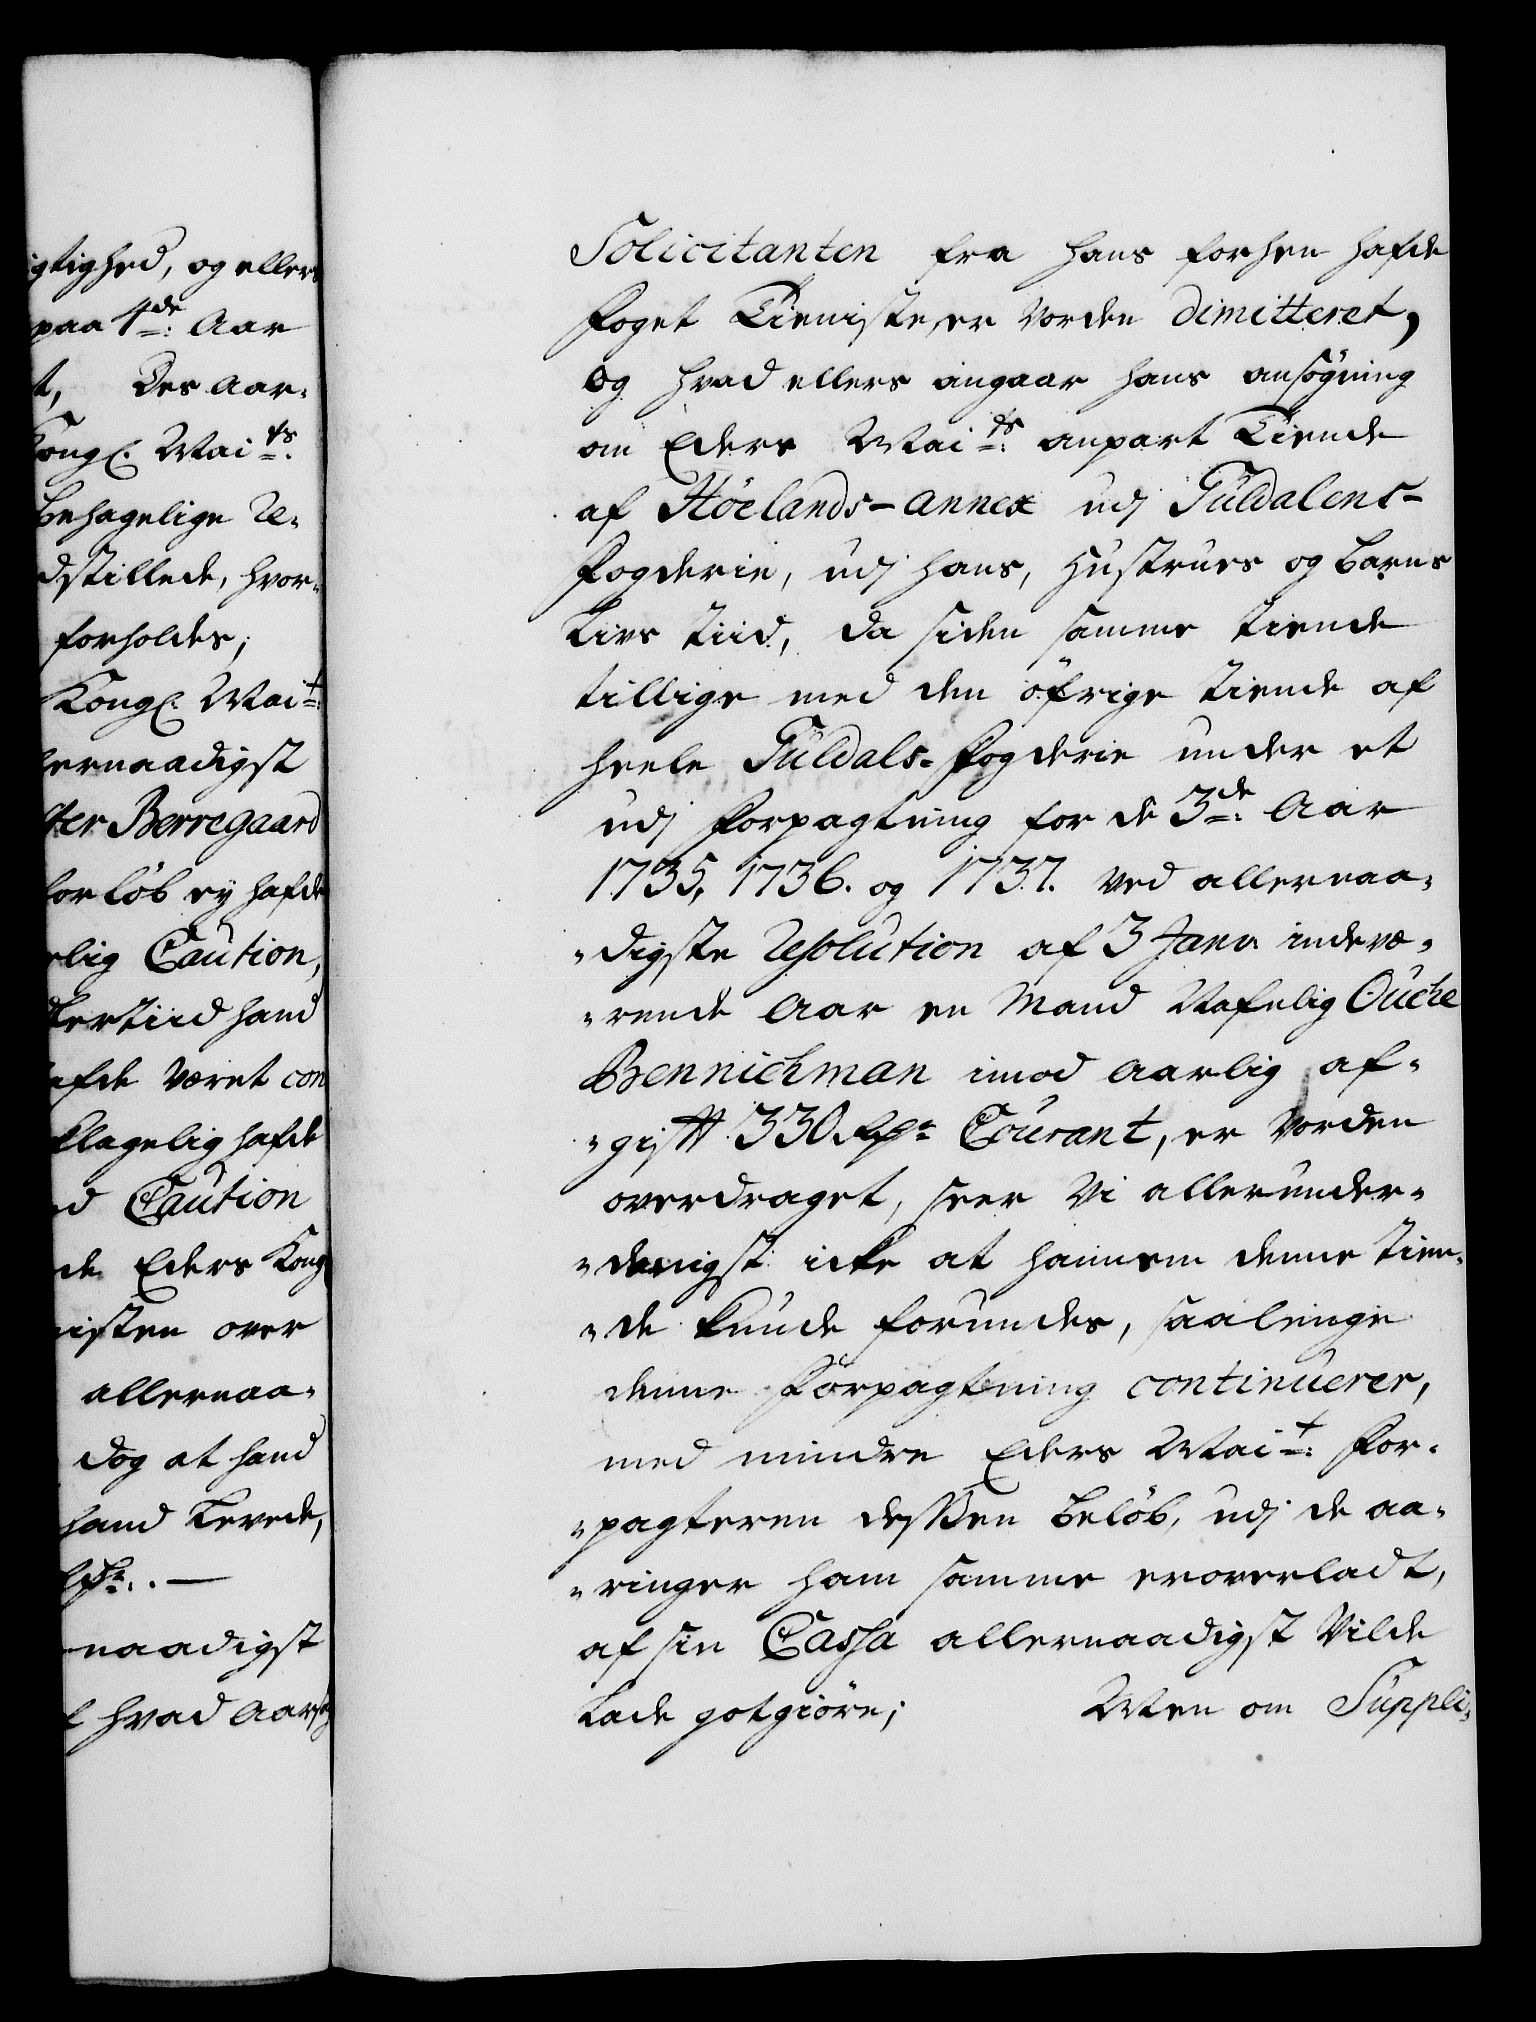 igtighed, og ellers
paa 4de: Aar
t, Des Aar-
Kongl. Mai ts:
behagelige Re-
dstillede, hvor-
forholdes;
Kongl. Mait:
lernaadigst
ter Berregaard
forløb ey hafde
rlig Caution,
dertiid hand
afde været con
klagelig hafde
d Caution
de Eders Kong
isten over
allernaa-
dog at hand
hand Levede,
naadigst
hvad Aars
Solicitanten fra hans forhen hafde
foget Tieniste, er vorden dimitteret,
og hvad ellers angaar hans ansøgning
om Eders Mai ts: anpart Tiende
af Høelands-annex udj Guldalens-
fogderie, udj hans, Hustrues og Barns
Livs tiid, da siden samme tiende
tillige med den øfrige tiende af
heele Guldals-fogderie under et
udj forpagtning for de 3de: Aar
1735, 1736. og 1737. ved allernaa-
-digste Resolution af 3 Janv. indevæ-
-rende Aar en Mand Nafnlig Ouche
Bennichman imod Aarlig af-
-gift 330 Rdr Courant, er vorden
overdraget, seer Vi allerunder-
-danigst icke at hannem denne tien-
-de kunde forundes, saalenge
denne forpagtning continuerer,
med mindre Eders Mait: for-
-pagteren dessen beløb, udj de aa-
-ringer ham samme er overladt,
af sin Cassa allernaadigst vilde
Lade gotgiøre; Men om Suppli-